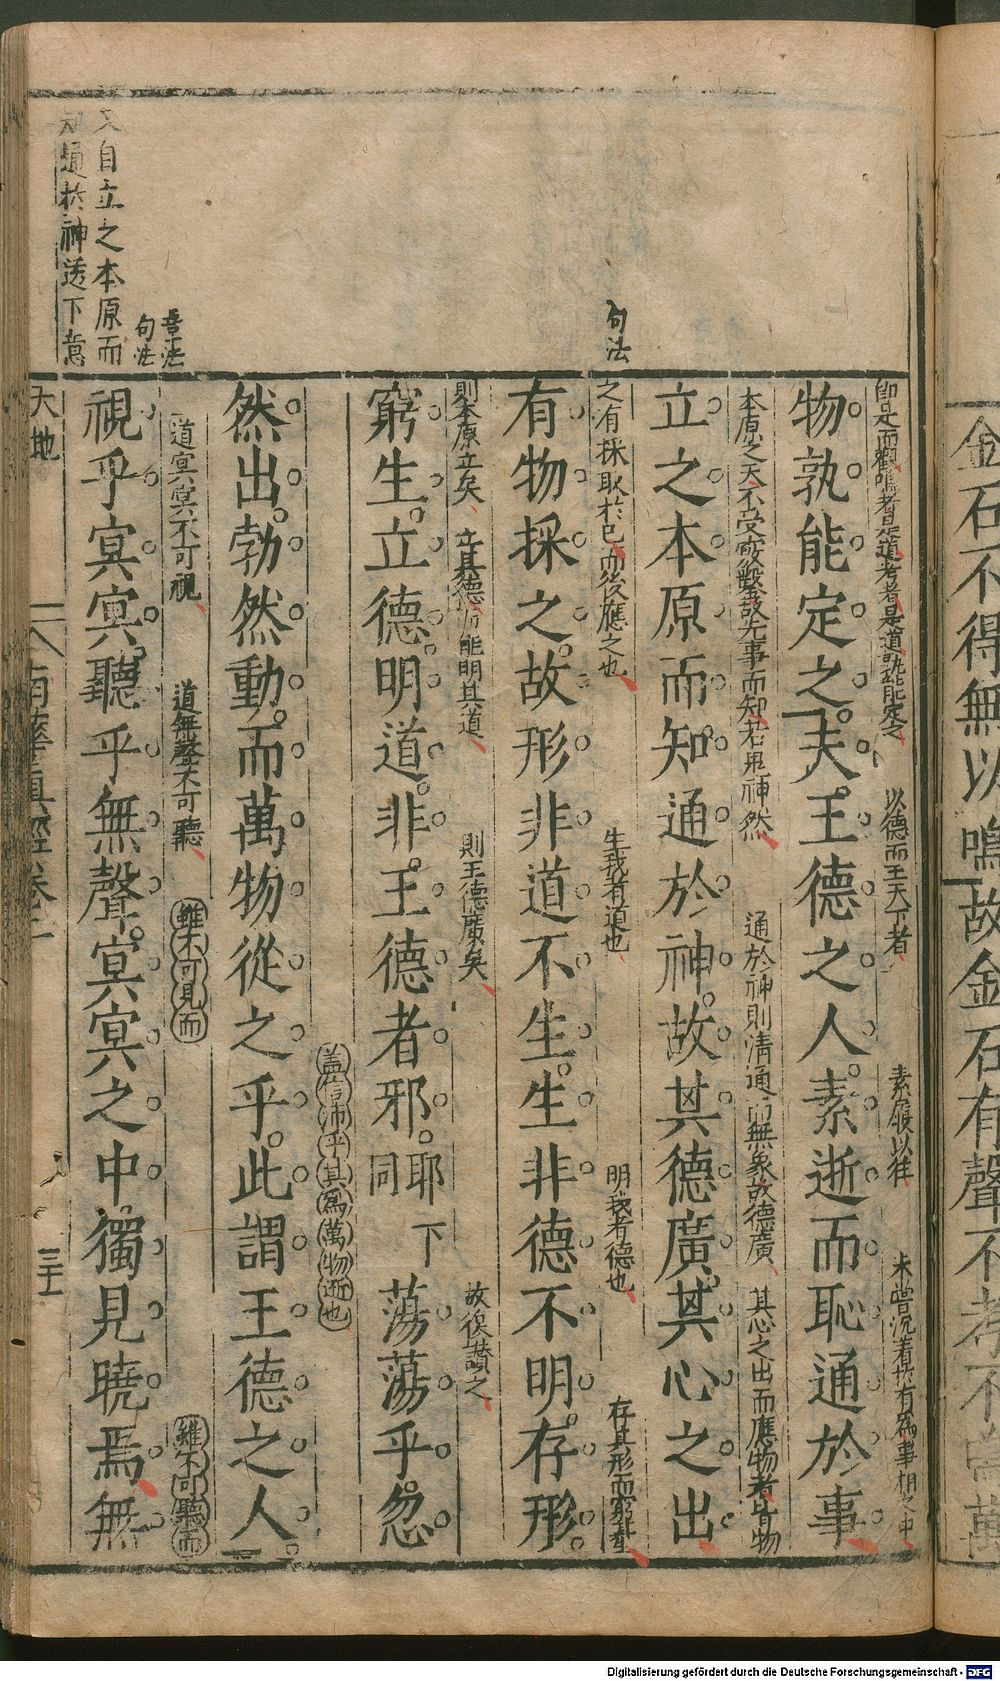 金石不得無以鳴故金石有聲不考不
萬
即是而觀鳴者是道考者是道孰能定之
以德而王天下者
素履以往
未嘗沉着於有為事相之中
物孰能定之夫王德之人素逝而恥通於事
本原之天不受
故先事而知若思神然
通於神則清通而無象故德廣
其心之出而應物者皆物
句法
立之本原而知通於神故其德廣其心之出
之有採取於己而後應之也
生我者道也
明我者德也
存其形而窮其
有物採之故形非道不生生非德不明存形
則本原立矣
立其德方能明其道
則王德廣矣
故復讚之
窮生立德明道非王德者邪耶同下蕩蕩乎忽
蓋信沛乎其為萬物逝也
然出勃然動而萬物從之乎此謂王德之人
吾法
句法
道冥冥不可視
道無聲不可聽
雖不可見而
雖不可聽而
視乎冥冥聽乎無聲冥冥之中獨見曉焉無
自立之本原而
知通於神透下意
天地
南華真經卷
三十
Digitalisierung gefördert durch die Deutsche Forschungsgemeinschaft - DFG